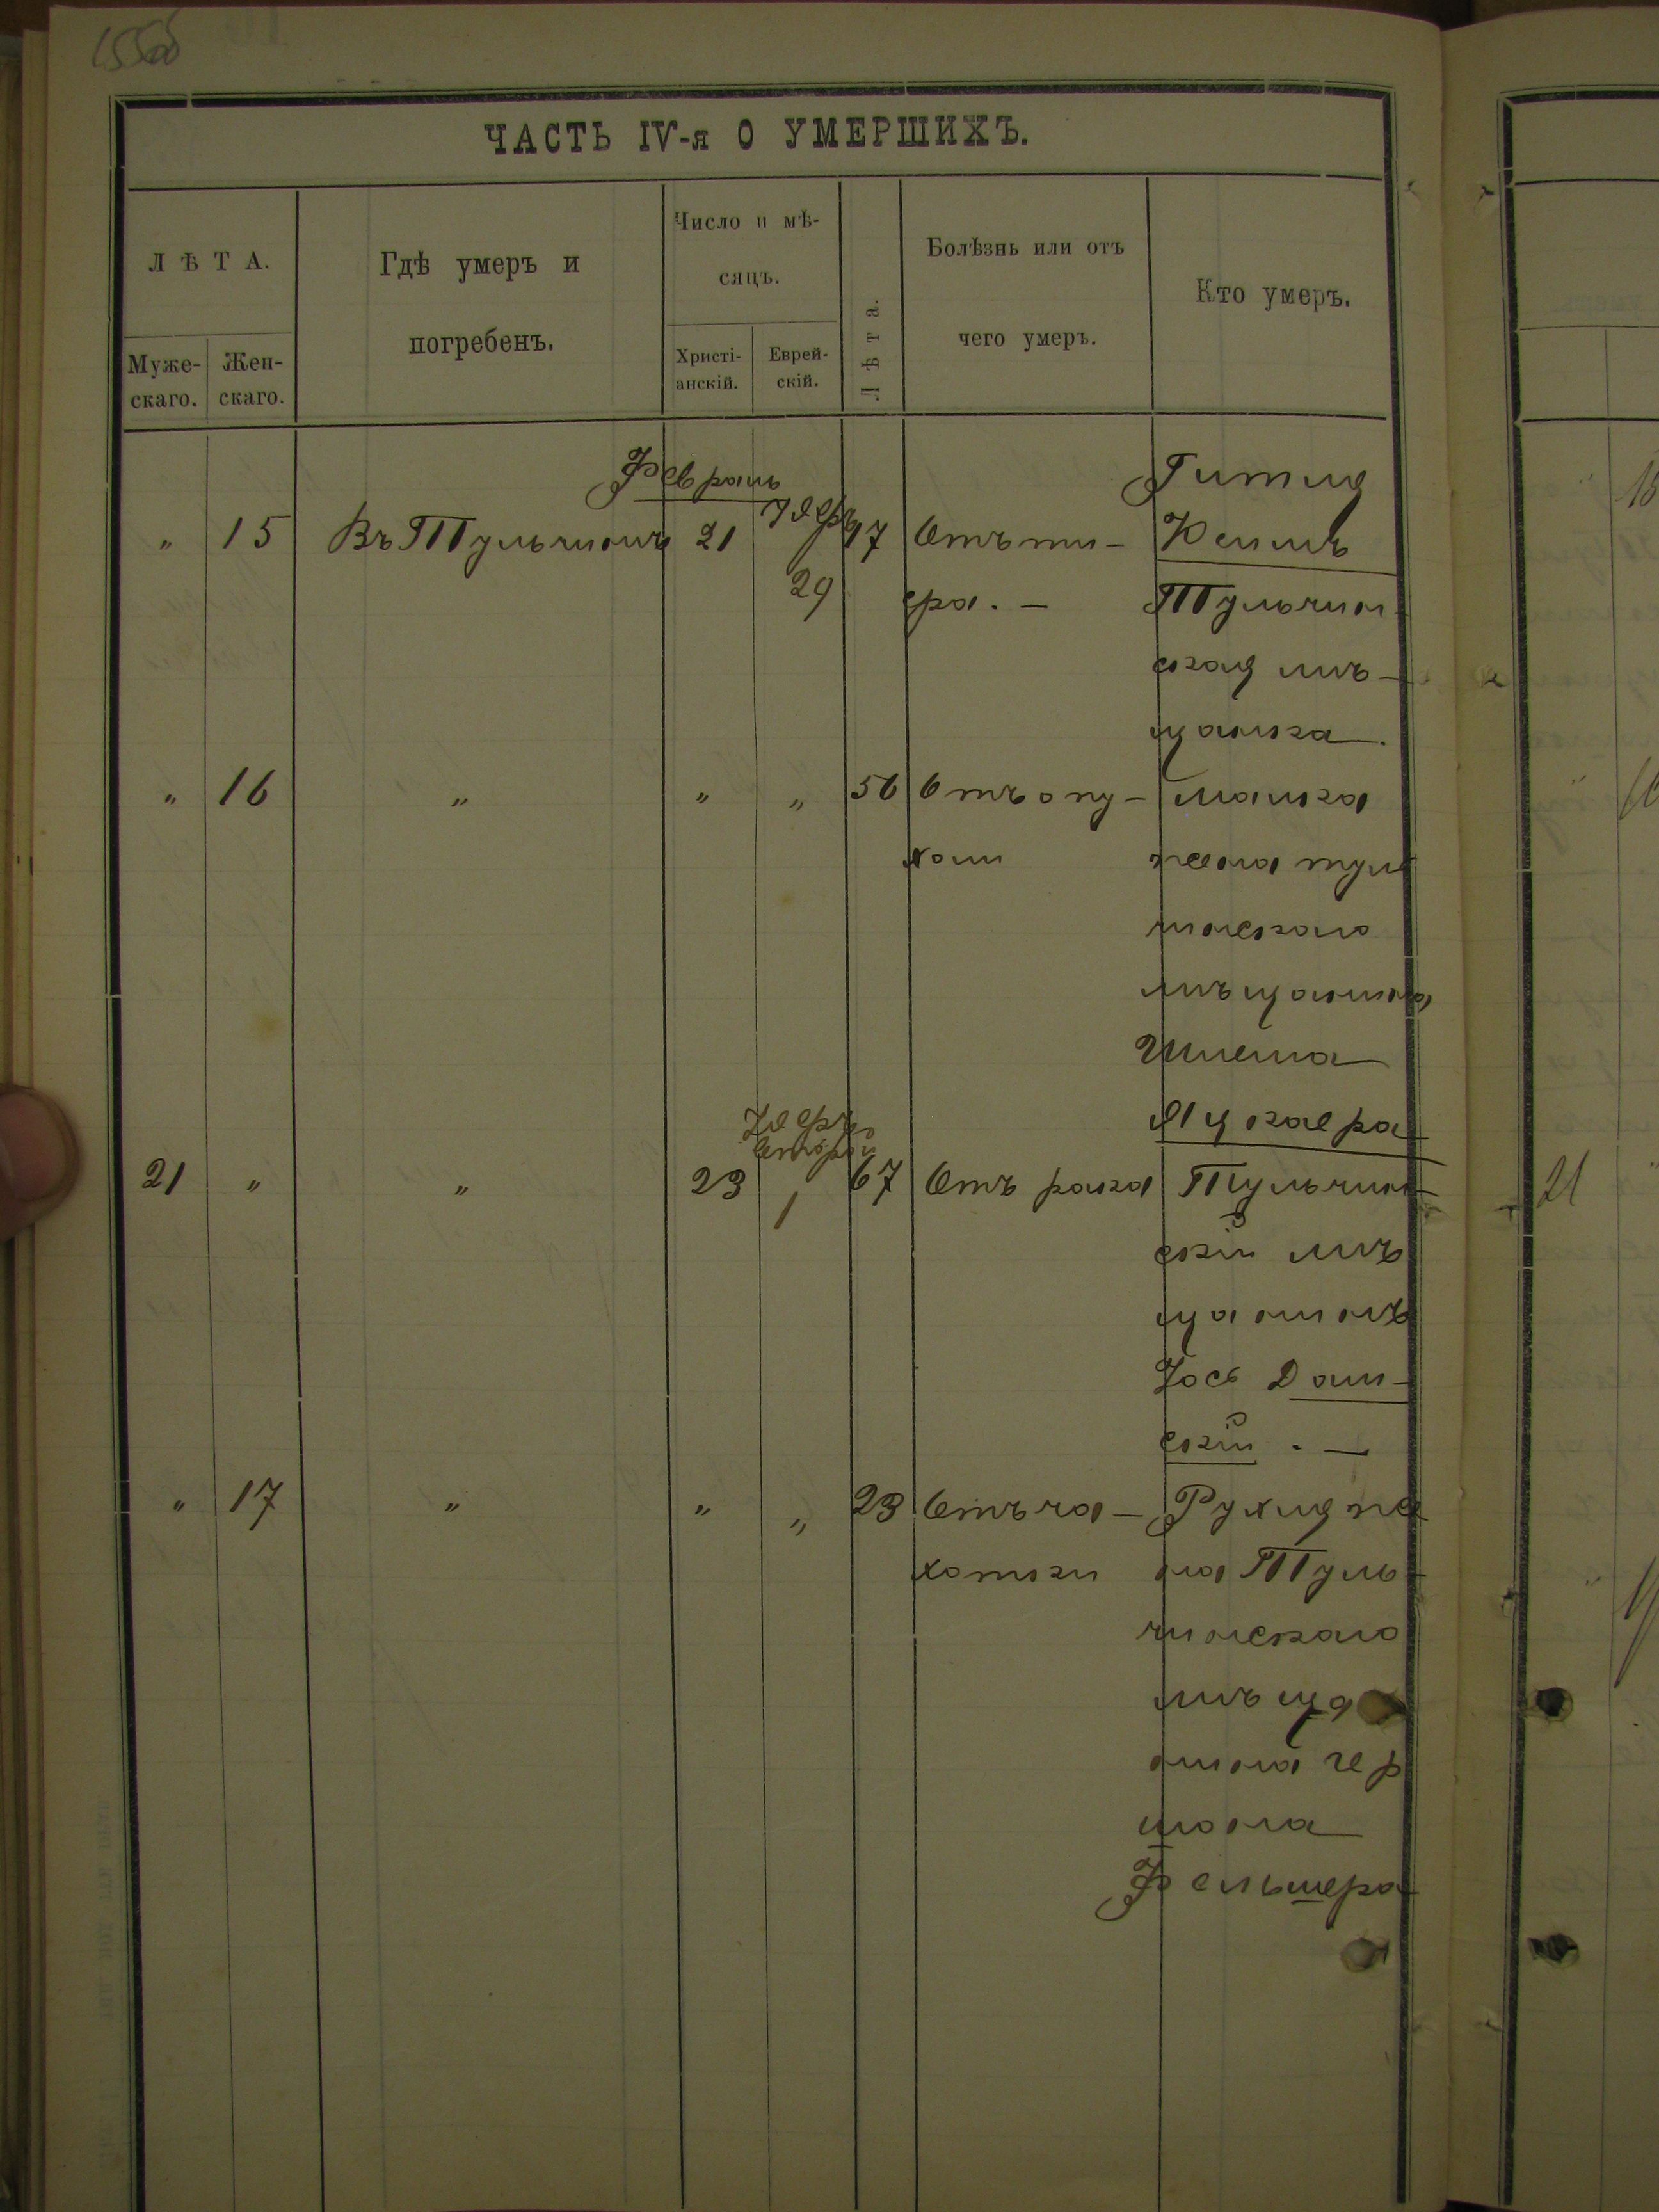 155об
ЧАСТЬ IV-я О УМЕРШИХЪ.
ЛѢТА.
Муже-
скаго.
Жен-
скаго.
Гдѣ умеръ и
погребенъ.
Число и мѣ-
сяцъ.
Христі-
анскій.
Еврей-
скій.
Лѣта.
Болѣзнь или отъ
чего умеръ.
Кто умеръ.
Февраль
" 15 Въ Тульчинѣ 21 Адеръ 29 Отъ ти-
фа. -
Гитля
Тульчин-
ская мѣ-
щанка.
" 16 " " " 56 Отъ опу-
холи
жена туль
чинскаго
мѣщанина
Шлема
21 " " 23 Адеръ
второй
1 67 Отъ рака Тульчин-
скій мѣ
щанинъ
Іось Даш-
скій. -
" 17 " " " 23 Отъ ча-
хотки
Рухля же
на Туль-
чинскаго
мѣща
нина Гер
шона
Фельшера
21